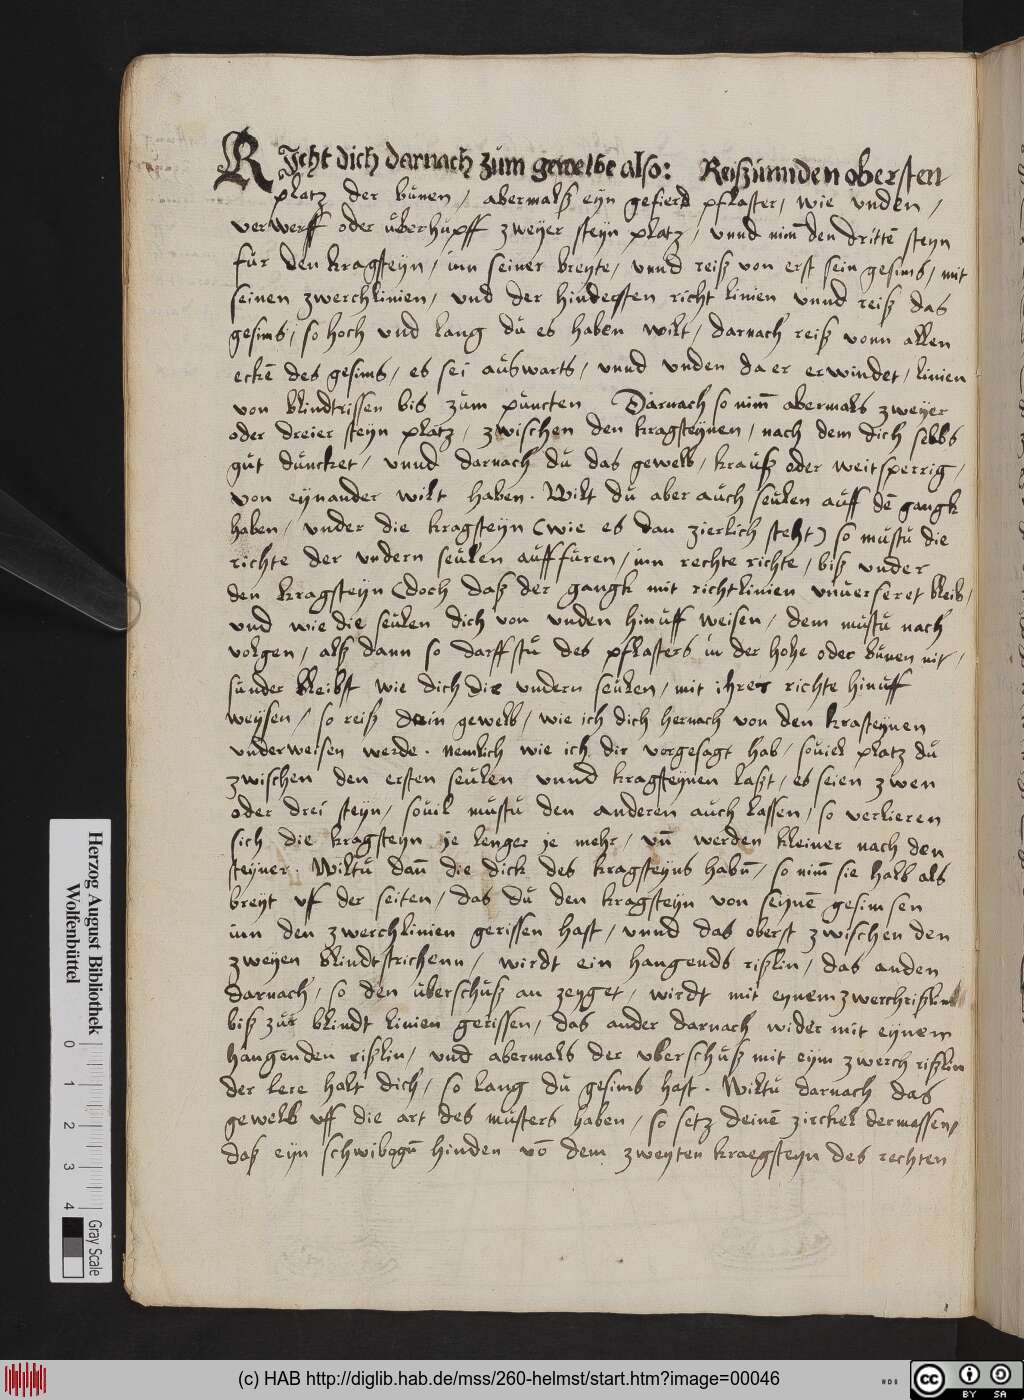 RJcht dich darnach zum gewelbe also: Reiß inn den obersten
platz der bünen, abermalß eyn gefierd pflaster, wie vnden,
verwerff oder überhüpff zweyer steyn platz, vnnd nim̄ den drittē steyn
für den kragsteyn, inn seiner breyte, vnnd reiß von erst sein gesims, mit
seinen zwerchlinien, vnd der hindersten richt linien vnnd reiß das
gesims, so hoch vnd lang du es haben wilt, darnach reiß vonn allen
eckē des gesims, es sei außwarts, vnnd vnden da er erwindet, linien
von blindtrissen bis zum puncten Darnach so nim̄ abermals zweyer
oder dreier steyn platz, zwischen den kragsteynen, nach dem dich selbs
gut duncket, vnnd darnach du das gewelb, krauß oder weitsperrig,
von eynander wilt haben. Wilt du aber auch seulen auff dē gangk
haben, vnder die kragsteyn (wie es dan zierlich steht) so mustu die
richte der vndern seulen aufffüren, inn rechte richte, biß vnder
den kragsteyn (doch daß der gangk mit richtlinien vnuerseret bleib,
vnd wie die seulen dich von vnden hinuff weisen, dem mustu nach
volgen, alß dann so darffstu des pflasters in der hohe oder bünen nit,
sunder bleibst wie dich die vndern seulen, mit ihrer richte hinuff
weysen, so reiß dein gewelb, wie ich dich hernach von den krasteynen
vnderweisen werde. nemlich wie ich dir vorgesagt hab, souiel platz du
zwischen den ersten seulen vnnd kragsteynen laßt, es seien zwen
oder drei steyn, souil mustu den anderen auch lassen, so verlieren
sich die kragsteyn je lenger je mehr, vn̄ werden kleiner nach den
steyner. Wiltu dan̄ die dick des kragsteyns habn̄, so nim̄ sie halb als
breyt vff der seiten, das du den kragsteyn von seynē gesimsen
inn den zwerchlinien gerissen hast, vnnd das oberst zwischen den
zweyen blindtstrichenn, wirdt ein hangends rißlin, das anden
darnach, so den überschuß an zeyget, wirdt mit eynem zwerchrißlin
biß zur blindt linien gerissen, das ander darnach wider mit eynem
hangenden rißlin, vnd abermals der vberschuß mit eym zwerch rißlin
der lere halt dich, so lang du gesims hast. Wiltu darnach das
gewelb vff die art des musters haben, so setz deinē zirckel dermassen,
daß eyn schwibogn̄ hinden vō dem zweyten kraegsteyn des rechten
Herzog August Bibliothek
Wolfenbüttel
0 1 2 3 4 Gray Scale
(c) HAB http://diglib.hab.de/mss/260-helmst/start.htm?image=00046
cc BY SA